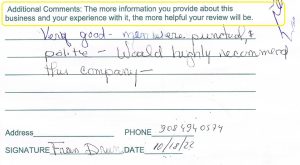 Additional Comments: The more information you provide about this
business and your experience with it, the more helpful your review will be.
Very good - men were punctual, &
polite - Would highly recommend
this company -
Address PHONE 9084940574
SIGNATURE Fran DATE 10/18/22